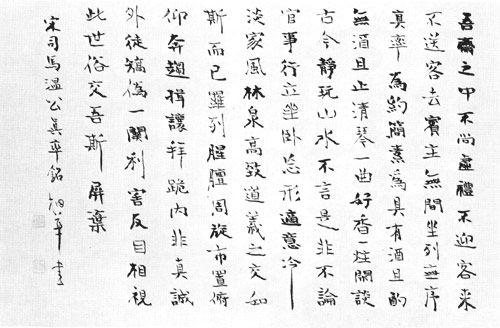 吾齋之中不尚虛禮不迎客來
不送客去賓主無間坐列無序
真率為約簡素為具有酒且酌
無酒且止清琴一曲好香一炷閑談
古今靜玩山水不言是非不論
官事行立坐卧忘形適意冷
淡家風林泉高致道義之交如
斯而已羅列腥膻周旋布置俯
仰奔趨揖讓拜跪內非真誠
外徒矯偽一關利害反目相視
此世俗交吾斯屏棄
宋司馬溫公真率銘 書